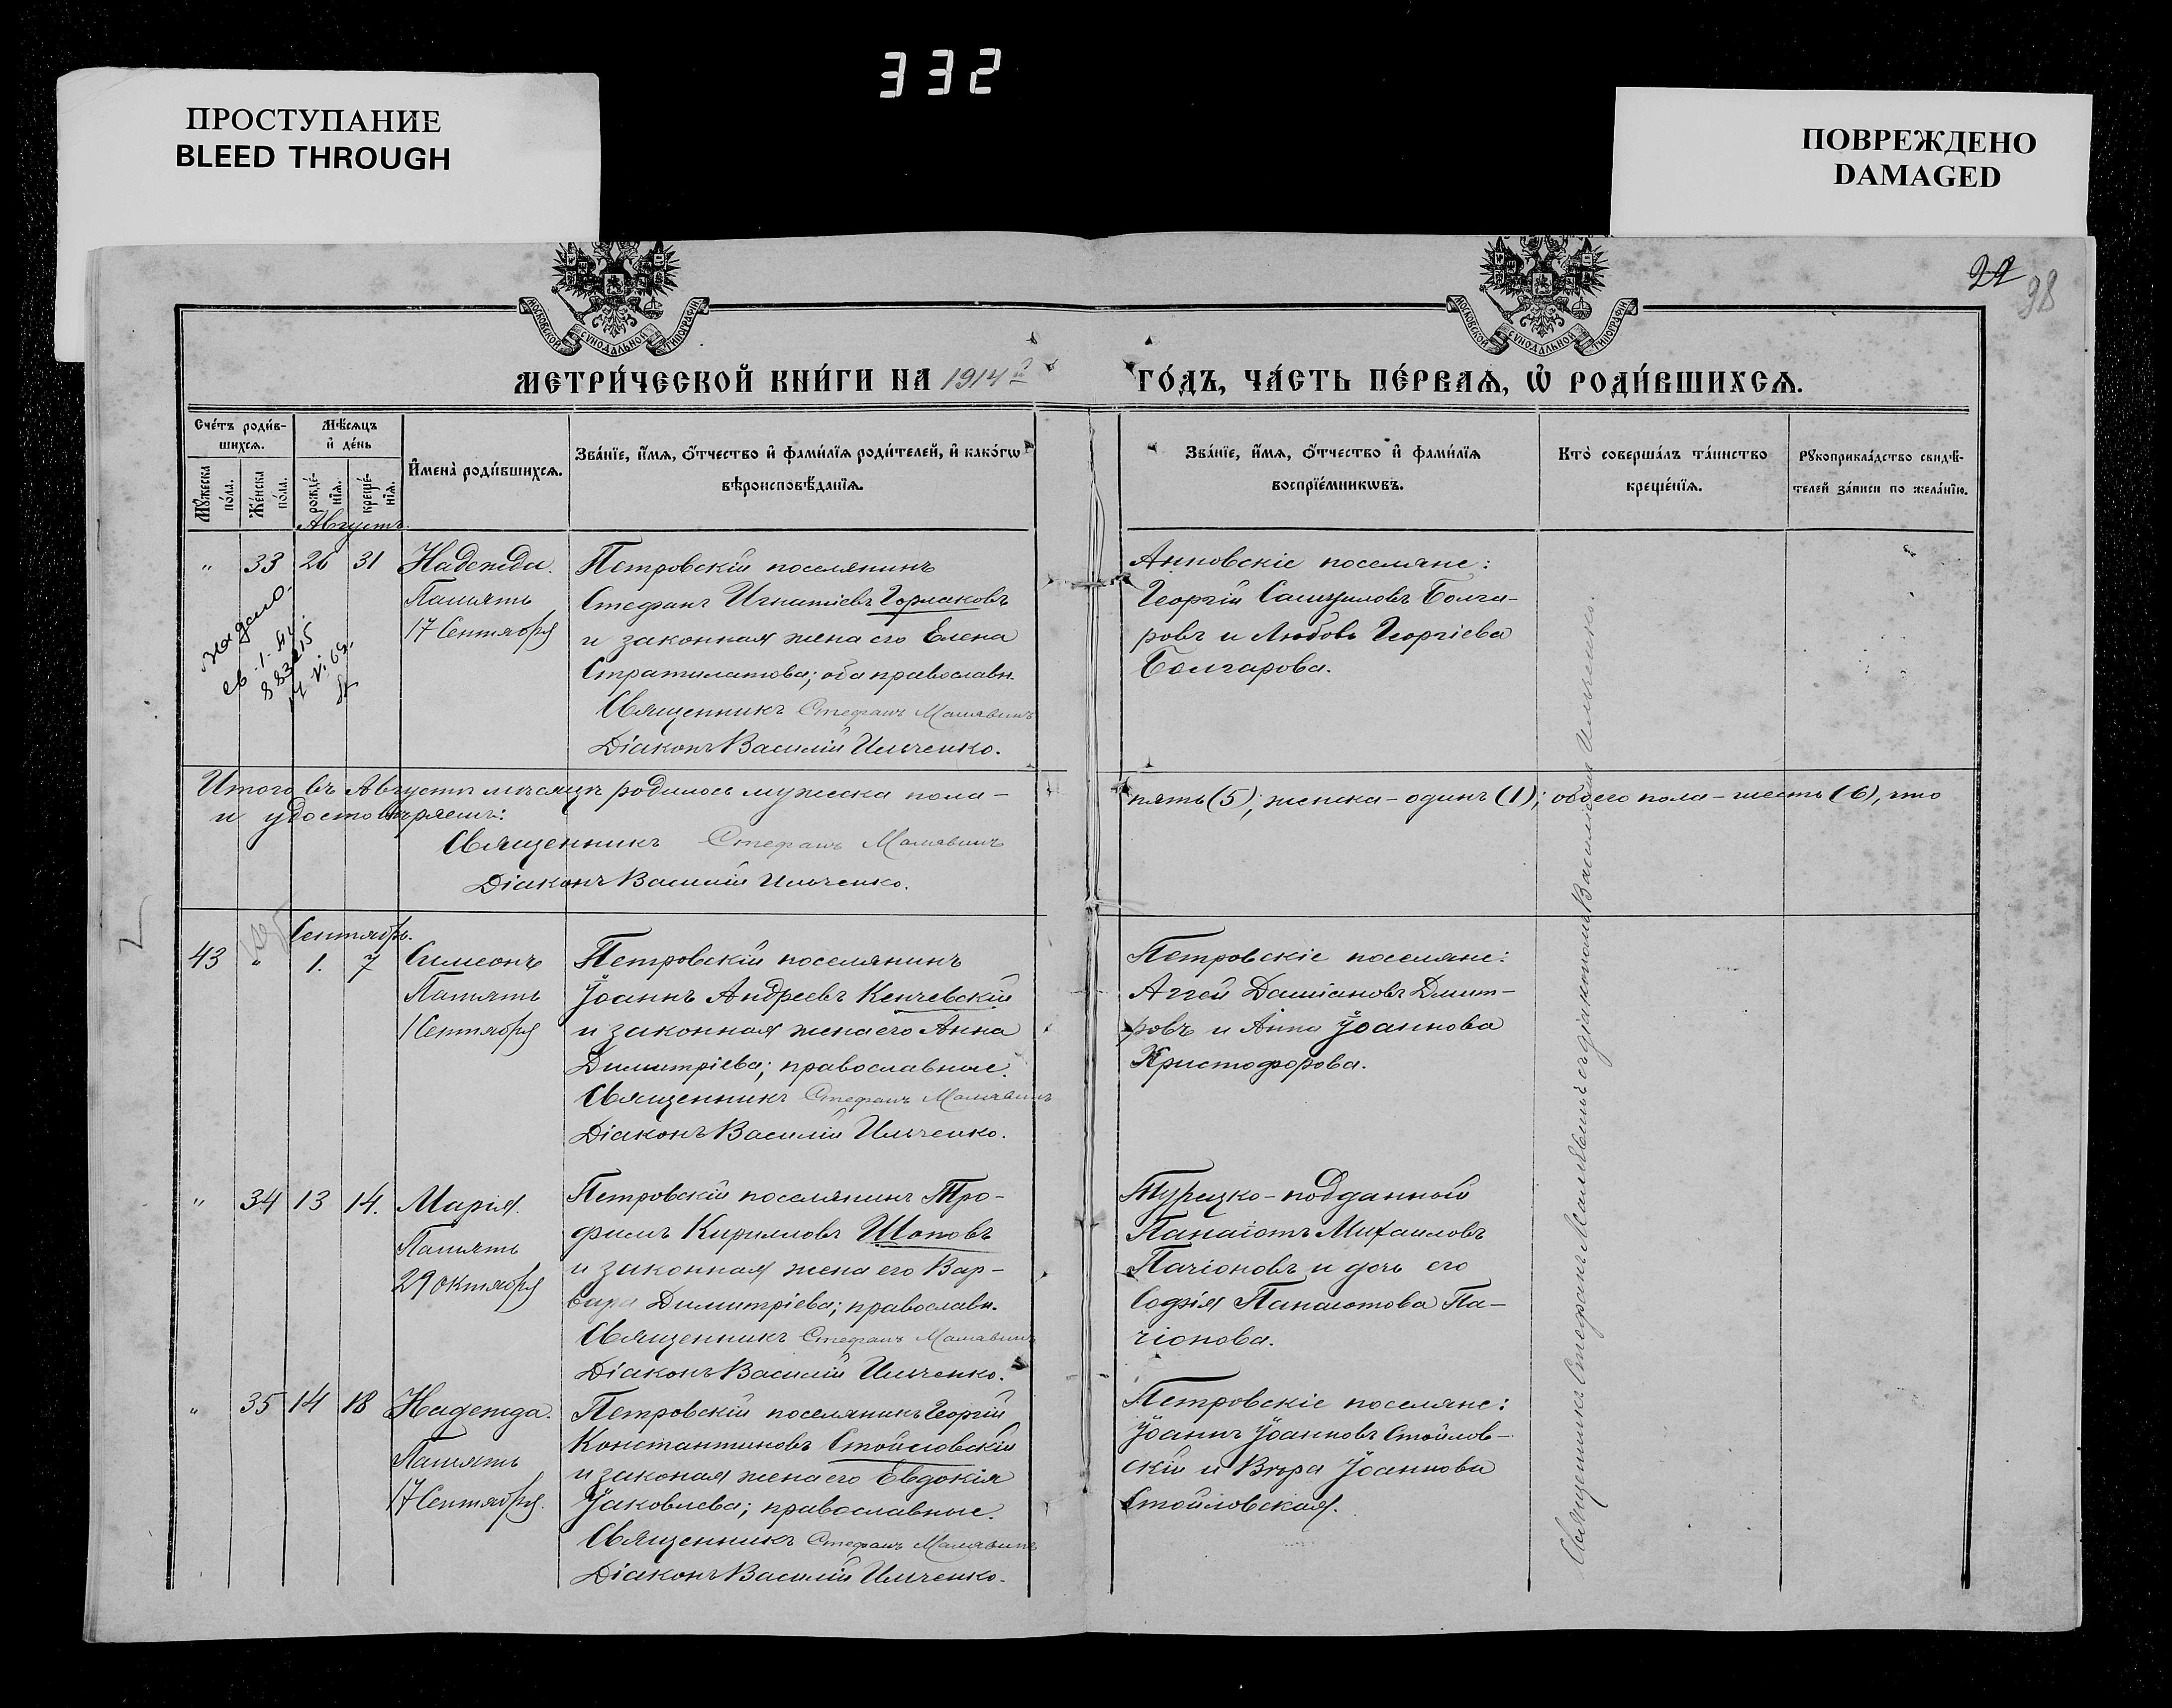 332
ПРОСТУПАНИЕ
BLEED THROUGH
ПОВРЕЖДЕНО
DAMAGED
22
98
МОСКОВСКОЙ СѴНОДАЛЬНОЙ ТИПОГРАФИИ
МОСКОВСКОЙ СѴНОДАЛЬНОЙ ТИПОГРАФИИ
МЕТРИ́ЧЕСКОЙ КНИ́ГИ НА 1914й ГО́ДЪ, ЧА́СТЬ ПЕ́РВАѦ, Ѡ҆ РОДИ́ВШИХСѦ.
Сче́тъ роди́в-
шихсѧ.
Мꙋ́жеска
по́ла.
Же́нска
по́ла.
Мѣ́сѧцъ
и҆ де́нь
рожде́-
нїѧ.
креще́-
нїѧ.
И҆мена̀ роди́вшихсѧ.
Зва́нїе, и҆́мѧ, ѻ҆́тчество и҆ фами́лїѧ роди́телей, и҆ како́гѡ
вѣроисповѣ́данїѧ.
Зва́нїе, и҆́мѧ, ѻ҆́тчество и҆ фами́лїѧ
воспрїе́мникѡвъ.
Кто̀ соверша́лъ та́инство
креще́нїѧ.
Рꙋкоприкла́дство свидѣ́-
телей за́писи по жела́нїю.
Августъ.
" 33 26 31 Надежда.
Память
17 Сентября
Петровскій поселянинъ
Стефанъ Игнатіевъ Горлаковъ
и законная жена его Елена
Стратилатова; оба православн.
Священникъ Стефанъ Малявинъ
Діаконъ Василій Ильченко.
Анновскіе поселяне:
Георгій Самуиловъ Болга-
ровъ и Любовь Георгіева
Болгарова.
Итого въ Августѣ мѣсяцѣ родилось мужеска пола – пять (5); женска – одинъ (1); обоего пола – шесть (6), что
и удостовѣряемъ:
Священникъ Стефанъ Малявинъ
Діаконъ Василій Ильченко.
Сентябрь.
43 " 1. 7 Симеонъ
Память
1 Сентября
Петровскій поселянинъ
Іоаннъ Андреевъ Кенчевскій
и законная жена его Анна
Димитріева; православные.
Священникъ Стефанъ Малявинъ
Діаконъ Василій Ильченко.
Петровскіе поселяне:
Аггей Даміановъ Дмит-
ровъ и Анна Іоаннова
Христофорова.
" 34 13 14. Марія.
Память
29 октября
Петровскій поселянинъ Тро-
фимъ Кирилловъ Шоповъ
и законная жена его Вар-
вара Димитріева; православн.
Священникъ Стефанъ Малявинъ
Діаконъ Василій Ильченко.
Турецко-подданный
Панаіотъ Михаиловъ
Пачіоновъ и дочь его
Софія Панаіотова Па-
чіонова.
" 35 14 18 Надежда.
Память
17 Сентября.
Петровскій поселянинъ Георгій
Константиновъ Стойловскій
и законая жена его Евдокія
Іаковлева; православные.
Священникъ Стефанъ Малявинъ
Діаконъ Василій Ильченко.
Петровскіе поселяне:
Іоаннъ Іоанновъ Стойлов-
скій и Вѣра Іоаннова
Стойловская.
Священникъ Стефанъ Малявинъ съ діакономъ Василіемъ Ильченко.